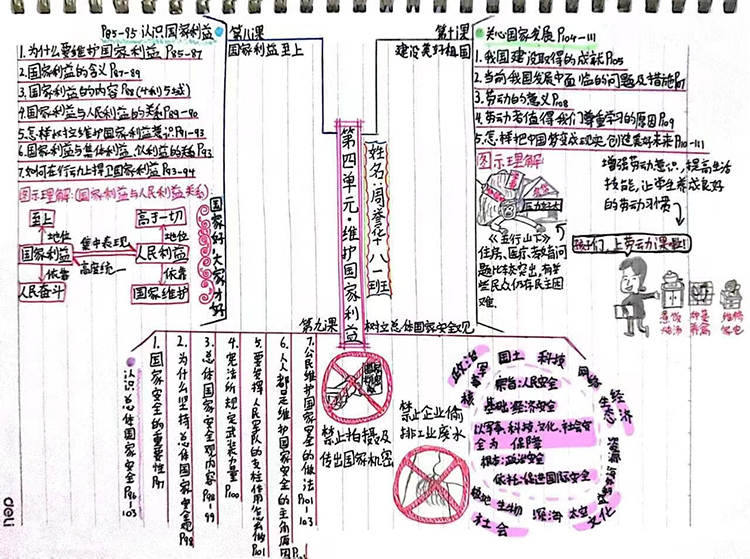 P85-95 认识国家利益
第八课
国家利益至上
1.为什么要维护国家利益 P85-87
2.国家利益的含义 P87-89
3.国家利益的内容 P88
4.国家利益与人民利益的关系 P89-90
5.怎样树立维护国家利益意识 P91-93
6.国家利益与集体利益、个人利益的关系 P93
7.如何在行动上捍卫国家利益 P93-94
图示理解:(国家利益与人民利益关系)
至上
高于一切
地位
地位
国家利益
集中表现
人民利益
高度统一
依靠
依靠
人民奋斗
国家维护
国家好,大家才好
第四单元·维护国家利益
姓名:周誉
八一班
第十课
建设美好祖国
关心国家发展 P104-111
1.我国建设取得的成就 P105
2.当前我国发展中面临的问题及措施 P107
3.劳动的意义 P108
4.劳动者值得我们尊重学习的原因 P109
5.怎样把中国梦变成现实,创造美好未来 P110-111
图示理解:
《五行山下》
住房、医疗、教育问
题比较突出,有些
民众仍存民主困
难.
增强劳动意识,提高生活
技能,让学生养成良好
的劳动习惯
孩子们,上劳动课啦!
煮饭
炖汤
种菜
养禽
维修
家电
第九课
树立总体国家安全观
认识总体国家安全 P96-103
1.国家安全的重要性 P97
2.为什么坚持总体国家安全观 P98
3.总体国家安全观内容 P98-99
4.宪法所规定武装力量 P100
5.要发挥人民军队的支柱作用怎么做 P101
6.人人都是维护国家安全的主角原因
7.公民维护国家安全的做法 P101-103
禁止拍摄及
传出国家机密
禁止企业偷
排工业废水
政治
军事
国土
科技
网络
经济
生态
文化
太空
深海
生物
极地
社会
宗旨:人民安全
基础:经济安全
以军事、科技、文化、社会安
全为 保障
根本:政治安全
依托:促进国际安全
deli